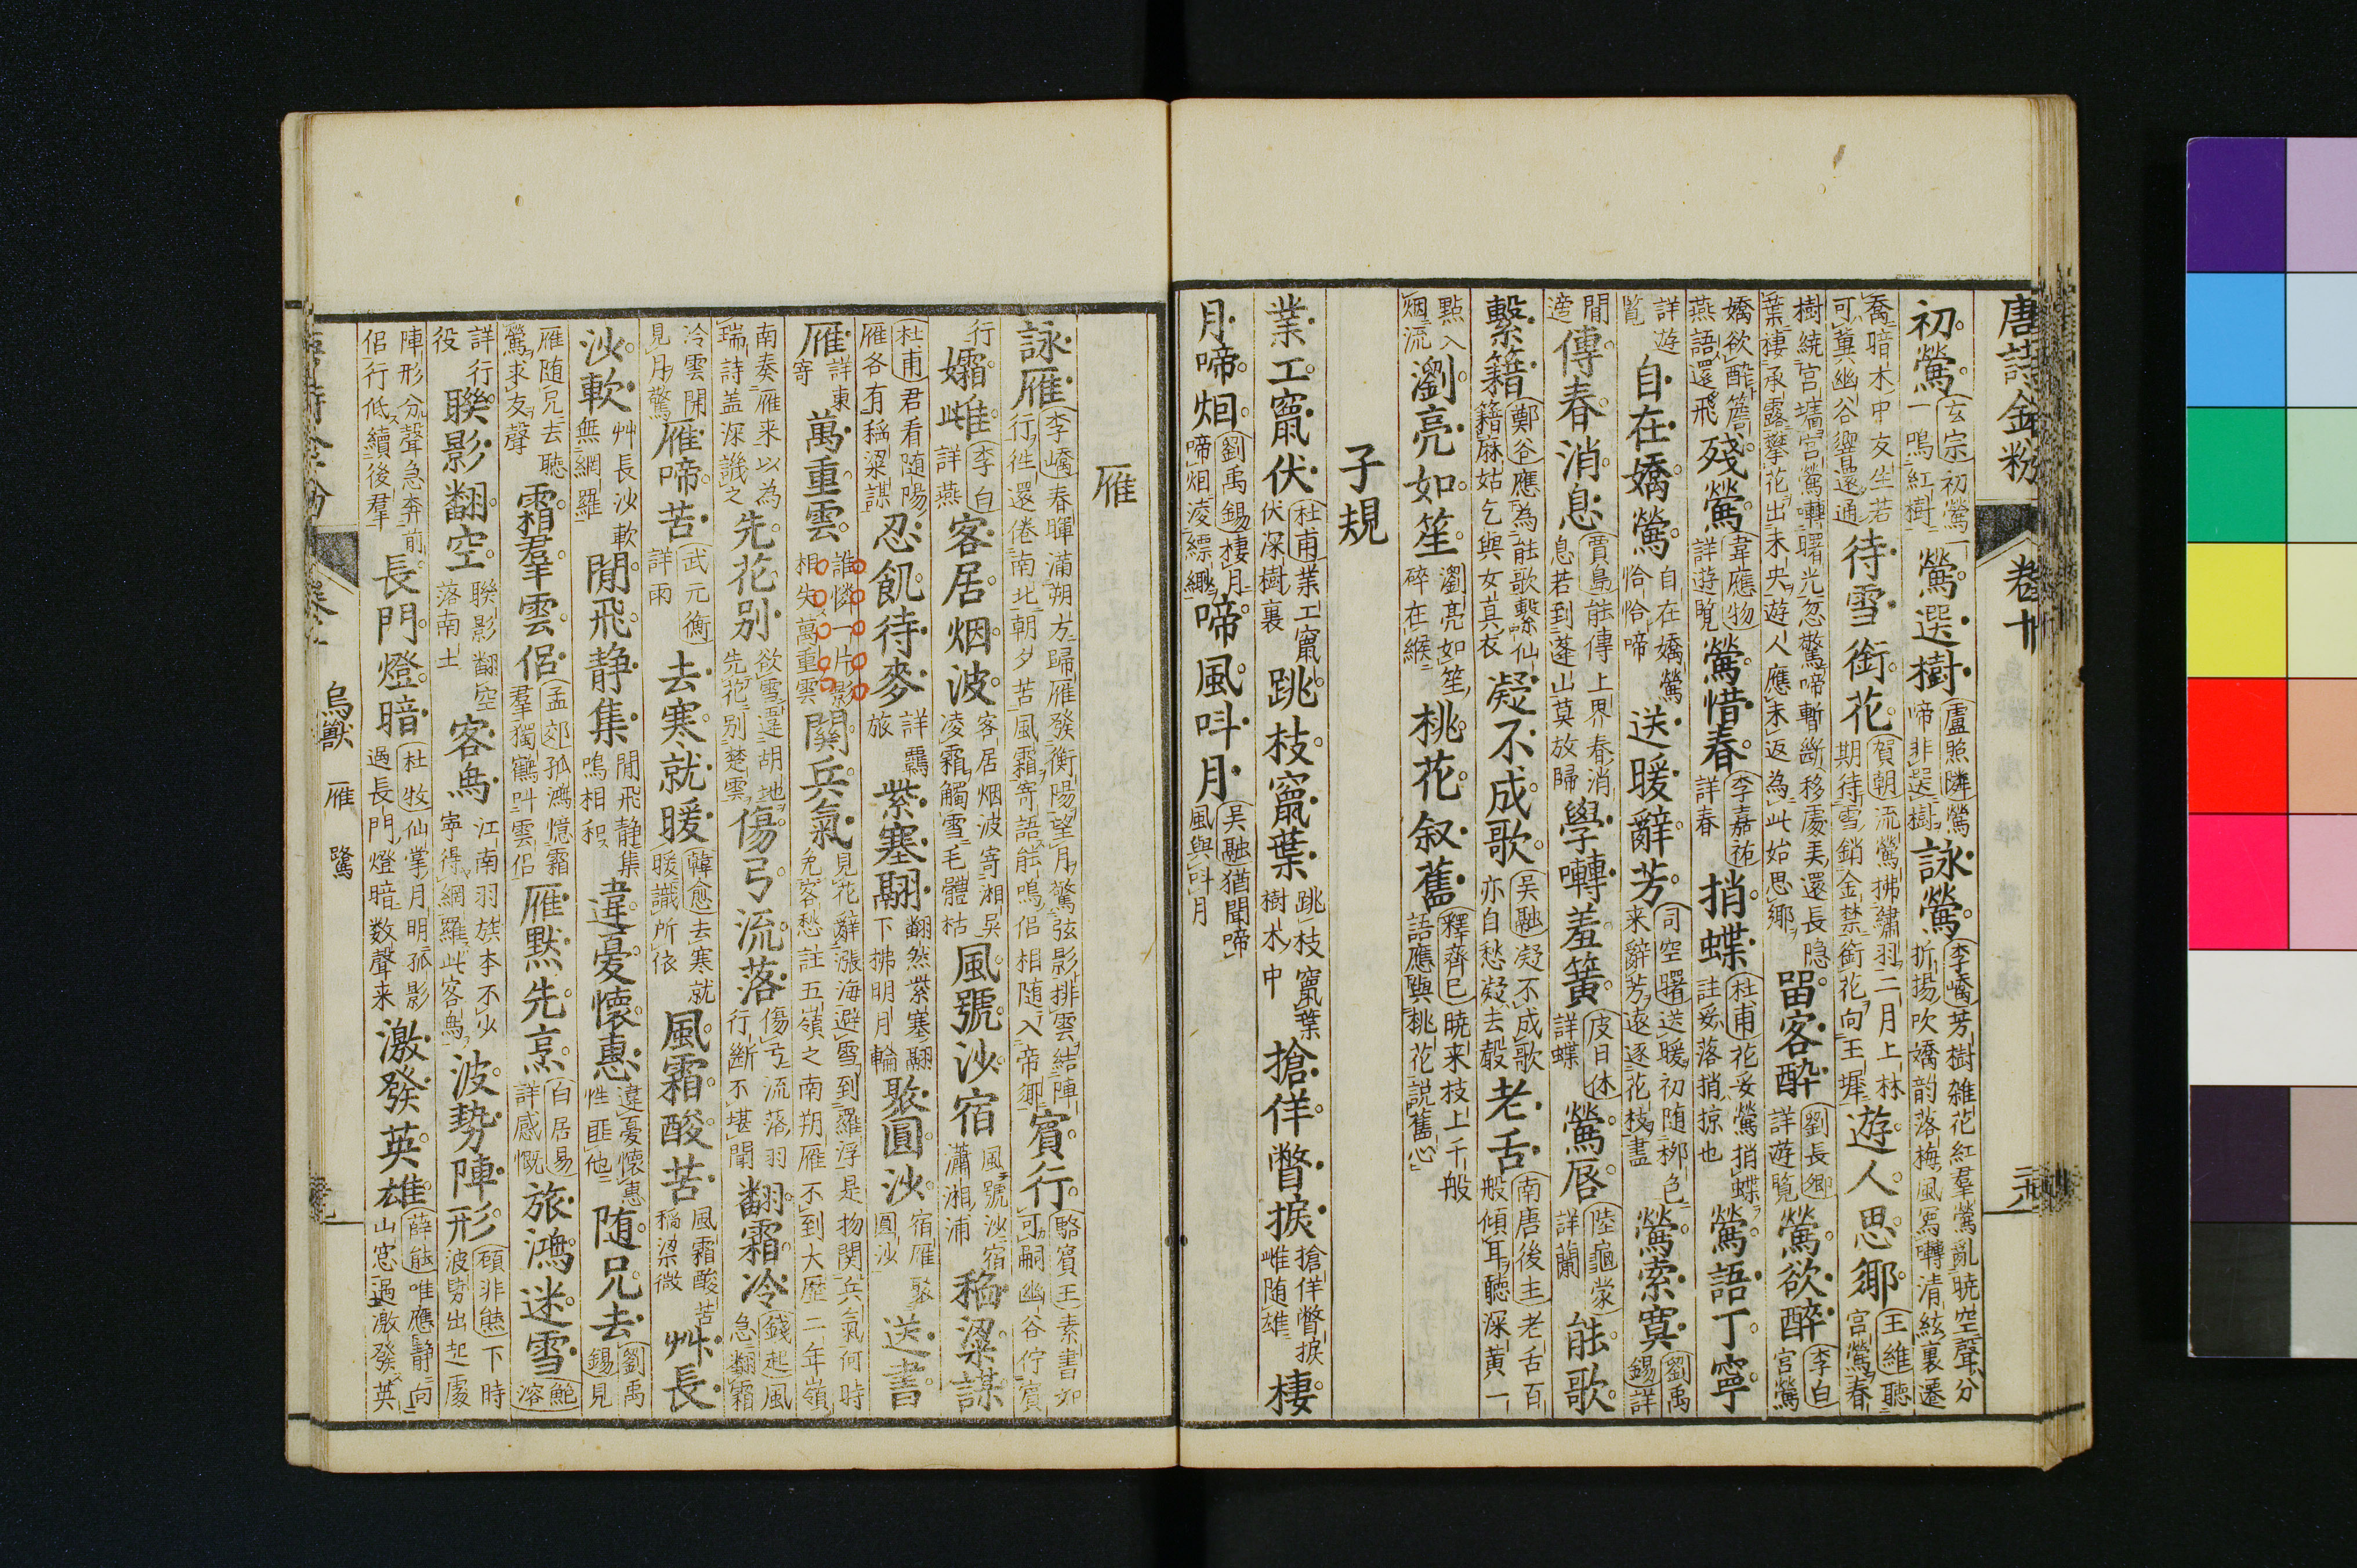 唐詩金粉 卷十
初鶯 玄宗初鶯一鳴紅樹 鶯選樹 盧照隣鶯啼非選樹 詠鶯 李嶠芳樹雑花紅羣鶯亂暁空聲分折揚吹嬌韵落梅風寫囀清絃裏遷
喬暗木中友生若可冀幽谷還通 待雪銜花 賀朝流鶯拂繡羽二月上林期待雪銷金禁銜花向玉墀 遊人思鄉 王維聴宮鶯春
樹繞宮墻宮鶯囀曙光忽驚啼暫断移處美還長隐葉棲承露攀花出未央遊人應未返為此始思郷 留客酔 劉長卿詳遊覧 鶯欲醉 李白宮鶯
嬌欲酔簷燕語還飛 殘鶯 韋應物詳遊覧 鶯惜春 李嘉祐詳春 捎蝶 杜甫花妥鶯捎蝶註妥落捎掠也 鶯語丁寧
詳遊覧 自在嬌鶯 自在嬌鶯恰恰啼 送暖辭芳 司空曙送暖初随栁色来辭芳遠逐花枝盡 鶯索寞 劉禹錫詳
閒適 傳春消息 賈島能傳上界春消息若到蓬山莫放歸 學囀羞簧 皮日休詳蝶 鶯唇 陸龜蒙詳蘭 能歌
繫籍 鄭谷應為能歌繫仙籍麻姑乞與女真衣 凝不成歌 吴融凝不成歌亦自愁凝去轂 老舌 南唐後主老舌百般傾耳聴深黄一
點入烟流 瀏亮如笙 瀏亮如笙碎在緱 桃花叙舊 釋齊已暁来枝上千般語應與桃花説舊心
子規
業工竄伏 杜甫業工竄伏深樹裏 跳枝竄葉 跳枝竄葉樹木中 搶佯瞥捩 搶佯瞥捩雌随雄 棲
月啼烟 劉禹錫棲月啼烟淩縹緲 啼風叫月 吴融猶聞啼風與叫月
雁
詠雁 李嶠春暉滿朔方歸雁發衡陽望月驚弦影排雲結陣行徃還倦南北朝夕苦風霜寄語能鳴侣相随入帝郷 賓行 駱賓王素書如可嗣幽谷佇賓
行 孀雌 李白詳燕 客居烟波 客居烟波寄湘吴凌霜觸雪毛體枯 風號沙宿 風號沙宿瀟湘浦 稻粱謀
杜甫君看随陽雁各有稱粱謀 忍飢待麥 詳羇旅 紫塞翮 翻然紫塞翮下拂明月輪 聚圓沙 宿雁聚圓沙 送書
雁 詳東寄 萬重雲 誰憐一片影相失萬重雲 關兵氣 見花辭漲海避雪到羅浮是物関兵氣何時免客愁註五嶺之南朔雁不到大歴二年嶺
南奏雁来以為瑞詩盖深譏之 先花别 欲雪違胡地先花别楚雲 傷弓流落 傷弓流落羽行断不堪聞 翻霜冷 錢起風急翻霜
冷雲開見月驚 雁啼苦 武元衡詳雨 去寒就暖 韓愈去寒就暖識所依 風霜酸苦 風霜酸苦稻梁微 艸長
沙軟 艸長沙軟無網羅 閒飛静集 閒飛静集鳴相和 違憂懷惠 違憂懐惠性匪他 随兄去 劉禹錫見
雁随兄去聴鶯求友聲 霜羣雲侣 孟郊孤鴻憶霜羣獨鶴叫雲侣 雁默先烹 白居易詳感慨 旅鴻迷雪 鮑溶
詳行役 聯影翻空 聯影翻空落南土 客鳥 江南羽族本不少寧得網羅此客鳥 波勢陣形 顧非熊下時波勢出起處
陣形分聲急奔前侣行低續後羣 長門燈暗 杜牧仙掌月明孤影過長門燈暗数聲来 激發英雄 薛能唯應静向山窓過激發英
鳥獸 雁 鷺